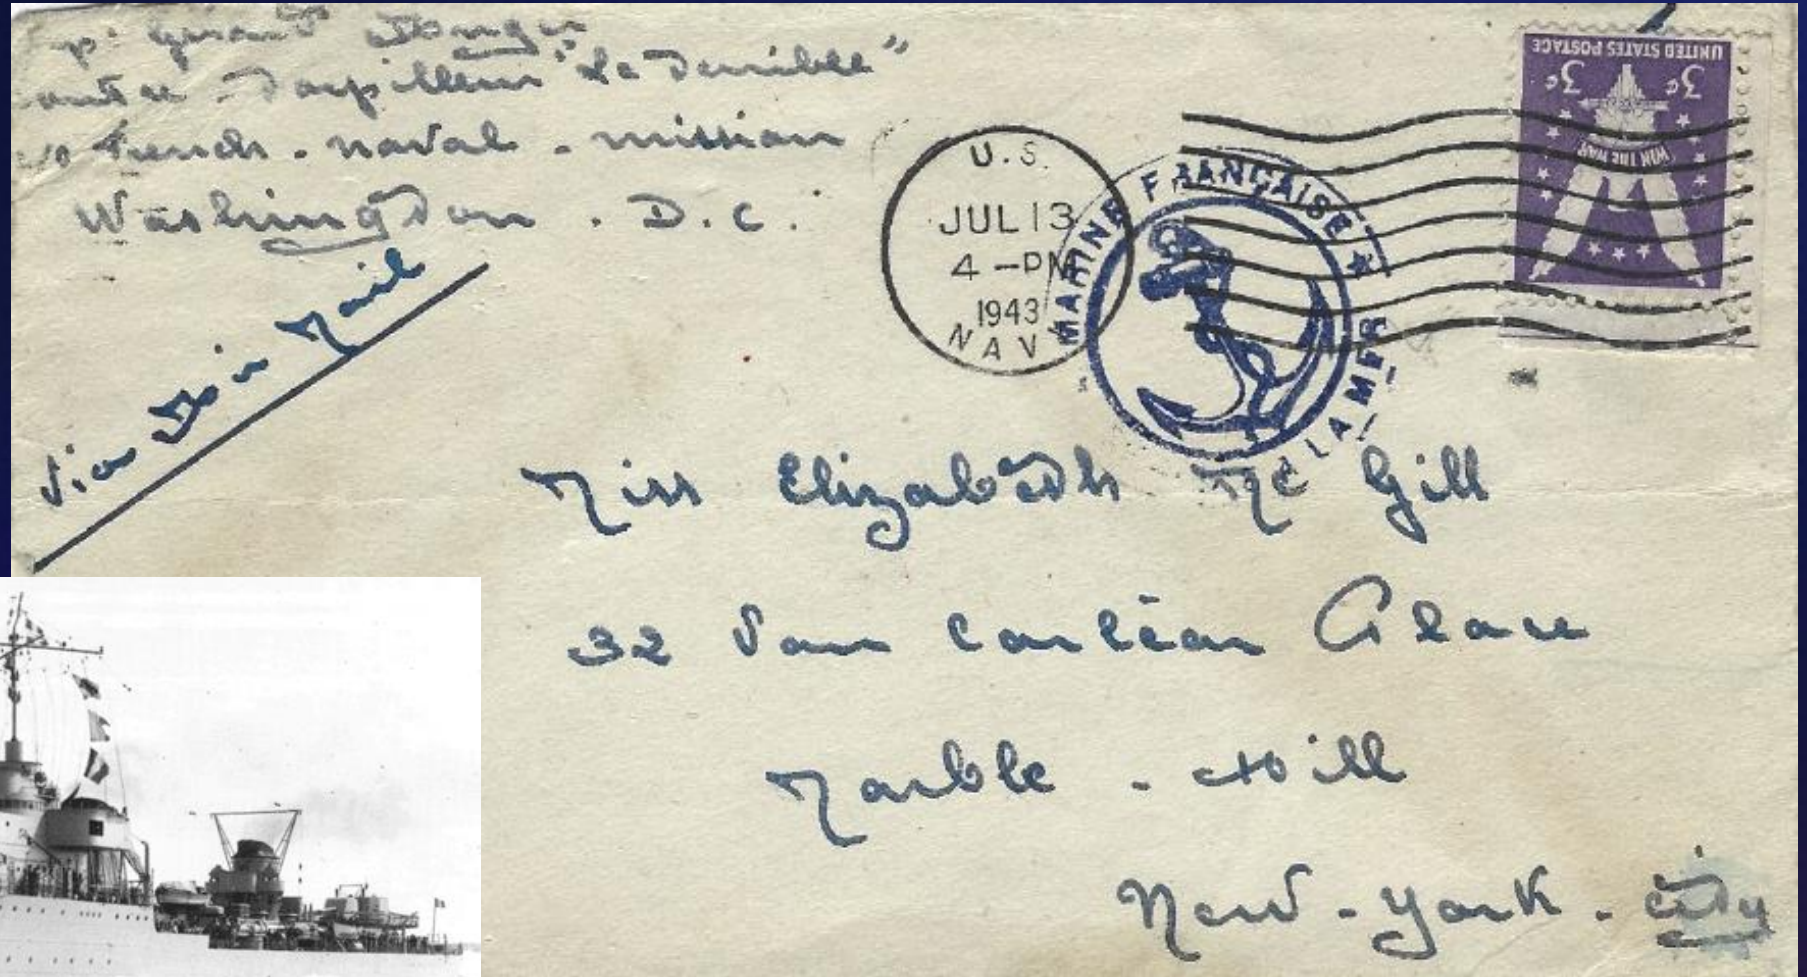 Contre-Torpilleur "Le Terrible"
c/o French - naval - mission
Washington . D. C.
Via Air Mail
U.S.
JUL 13
4 - PM
1943
NAVY
MARINE FRANÇAISE ★
DE LA MER
UNITED STATES POSTAGE
3¢ 3¢
WIN THE WAR
Miss Elizabeth Mc Gill
32 Van Corlear Place
Marble - Hill
New - York - City